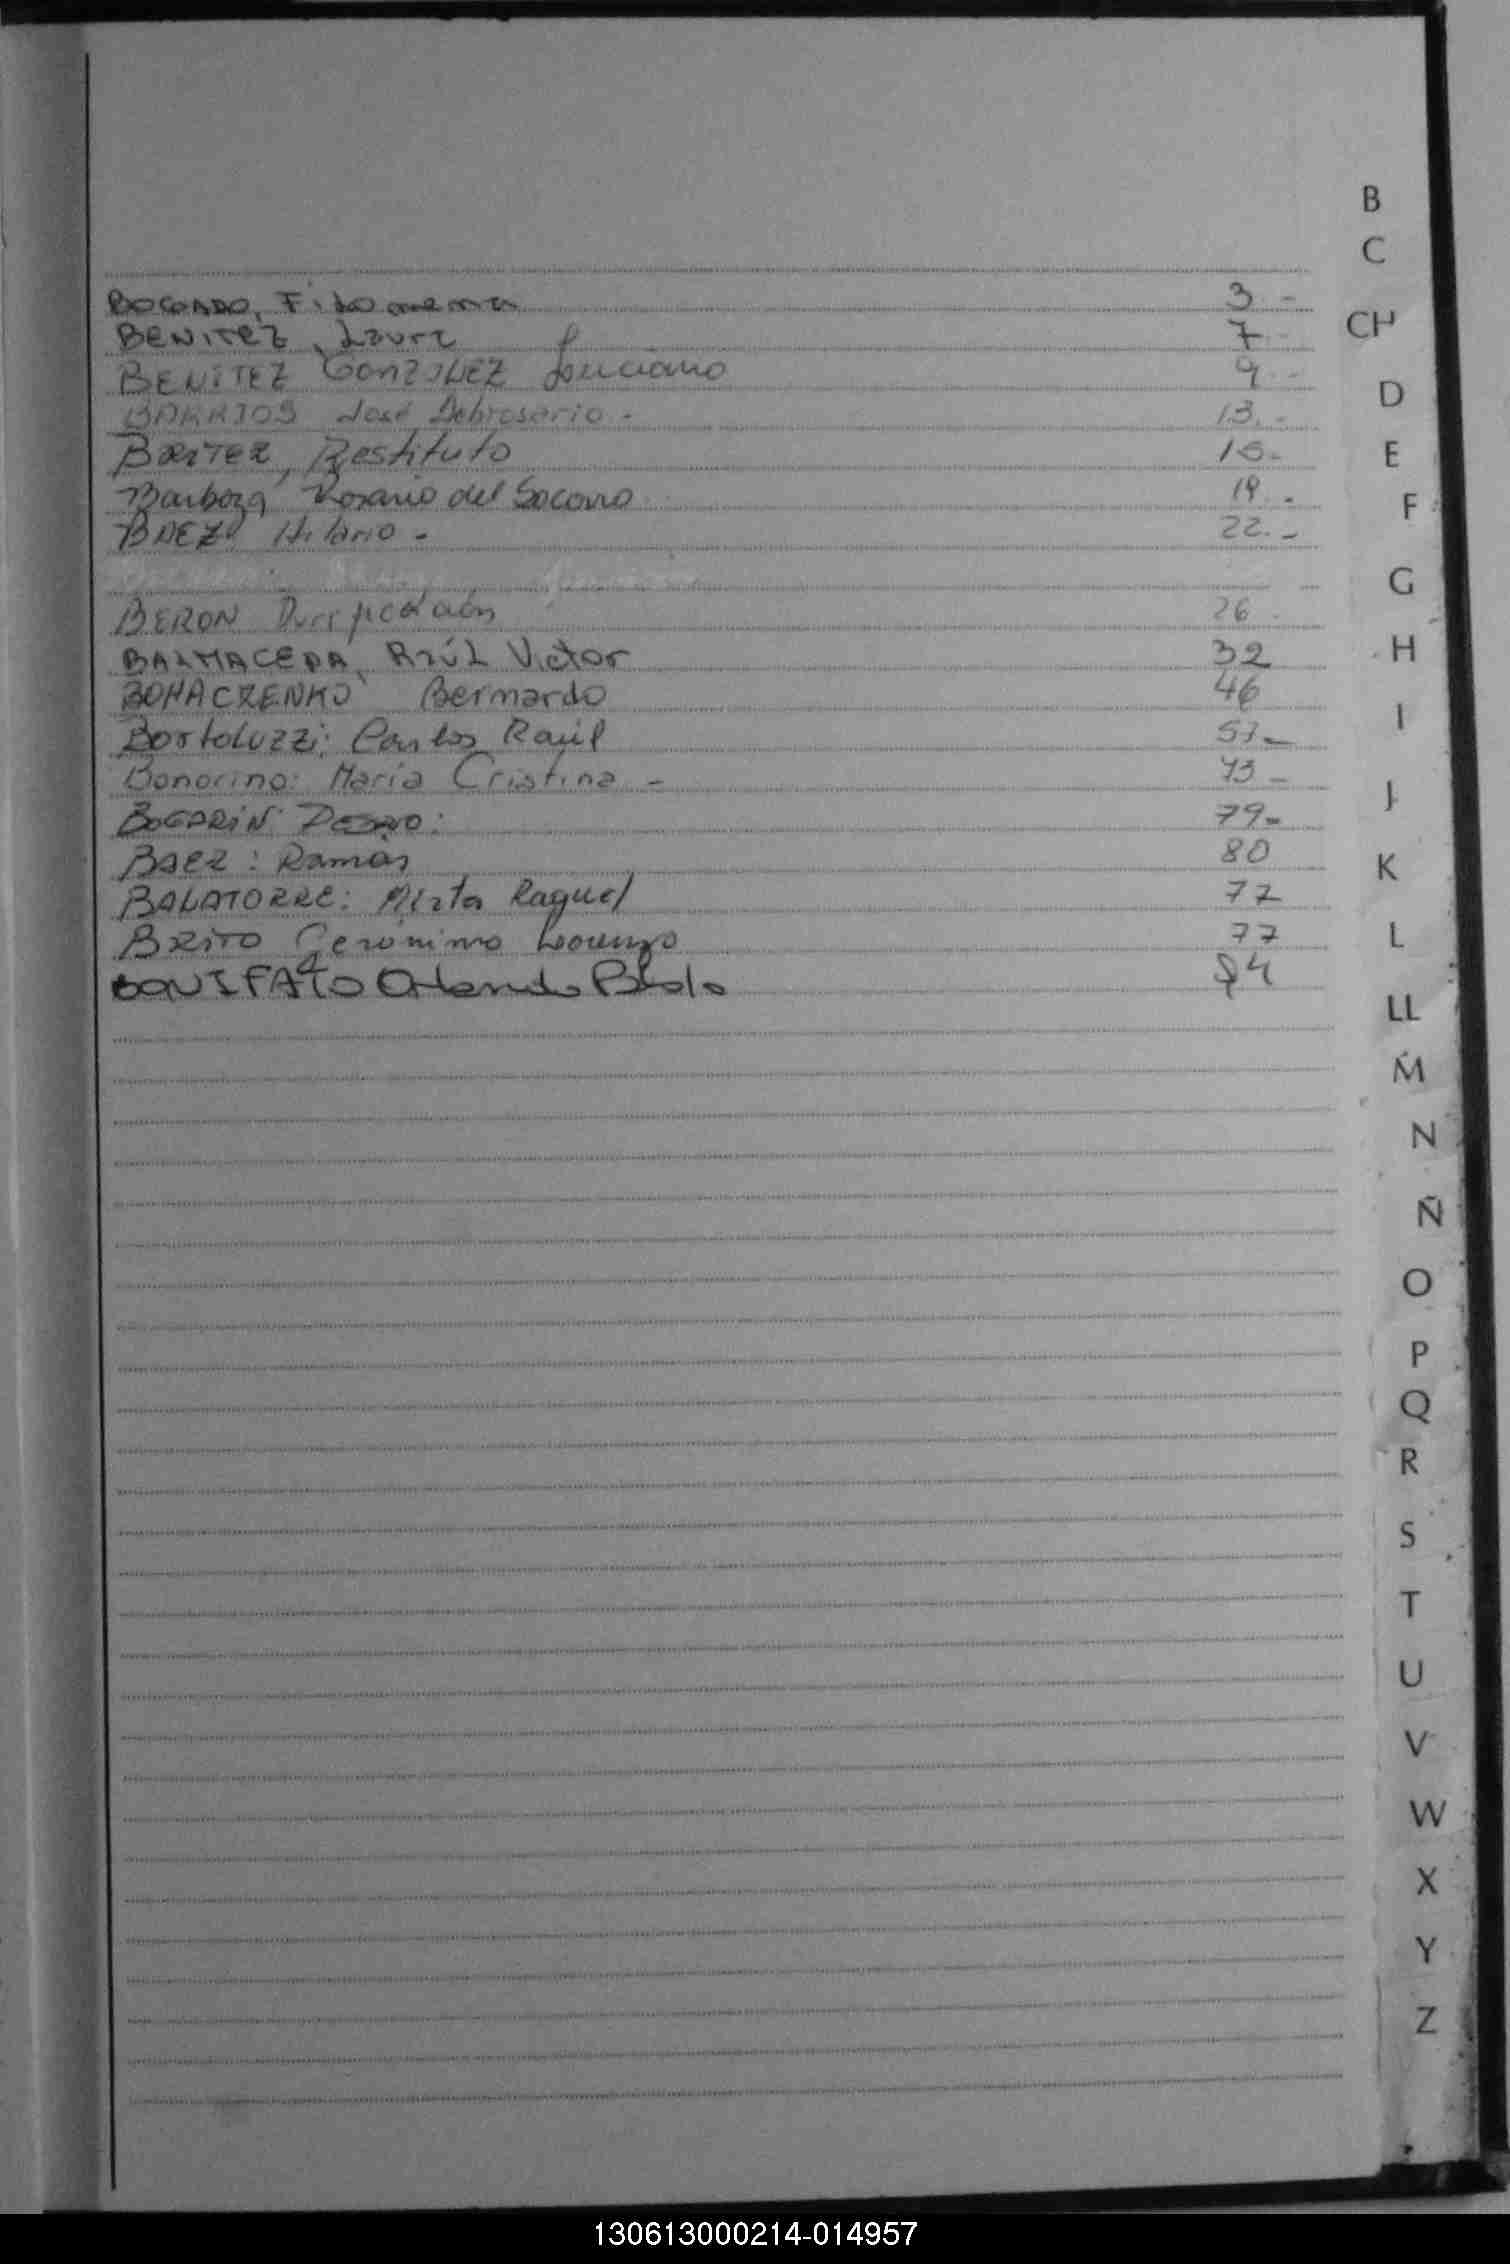 BOGADO, Filomena 3.-
BENITEZ, Laura 7.-
BENITEZ GONZALEZ Luciano 9.-
BARRIOS José Delrosario.- 13.-
BRITEZ, Restituto 15.-
Barboza, Rosario del Socorro 19.-
BAEZ Hilario.- 22.-
BERON Purificación 26.
BALMACEDA, RAÚL Victor 32
BOHACZENKO Bernardo 46
Bortoluzzi: Carlos Raúl 57.-
Bonorino: María Cristina.- 73.-
BOGARIN PEDRO: 79.-
BAEZ: Ramón 80
BALATORRE: Mirta Raquel 77
BRITO Gerónimo Lorenzo 77
BONIFATO Orlando Pablo 84
B
C
CH
D
E
F
G
H
I
J
K
L
LL
M
N
Ñ
O
P
Q
R
S
T
U
V
W
X
Y
Z
130613000214-014957